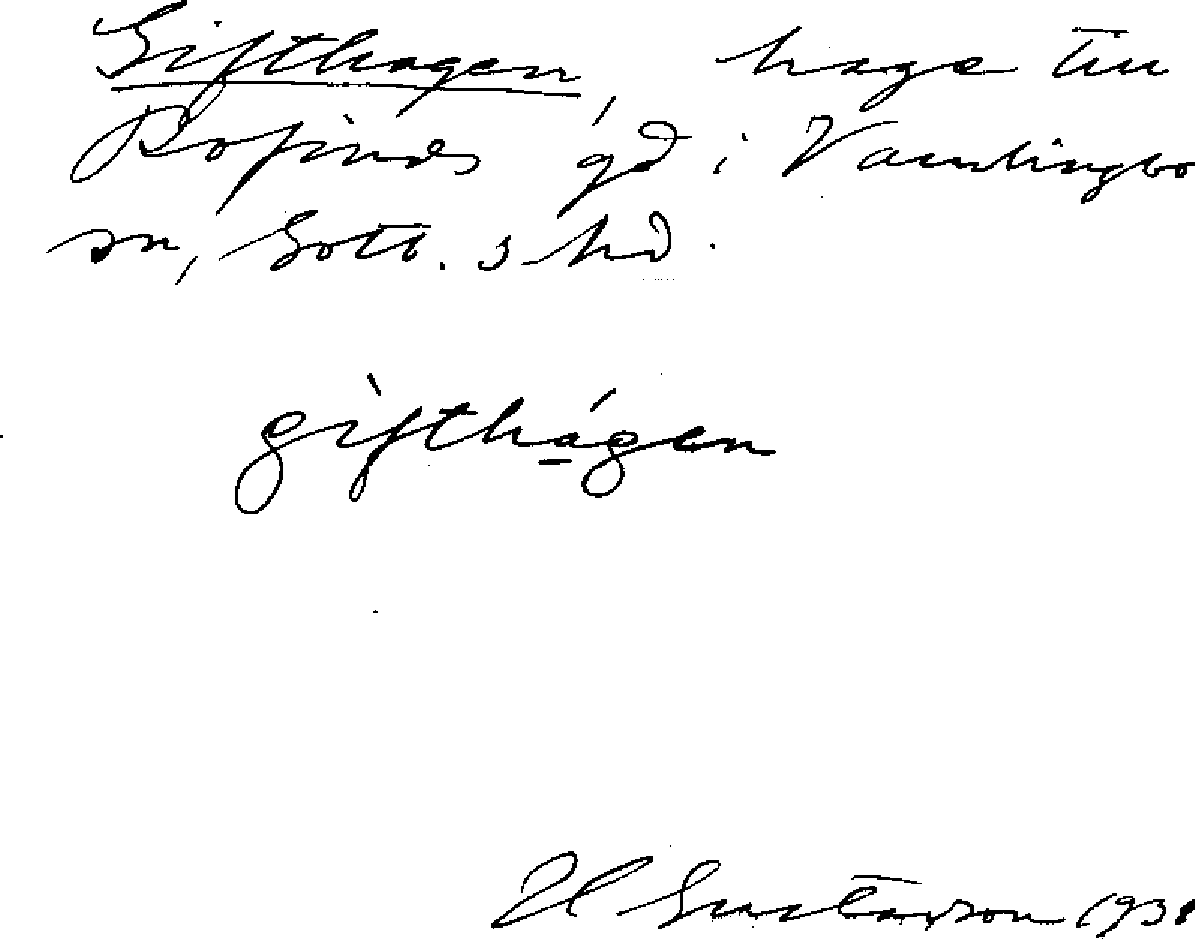 Gifthagen, hage till
Rofinds gd i Vamlingbo
sn, Gotl. s hd.
gifthagen
H Gustavson 193